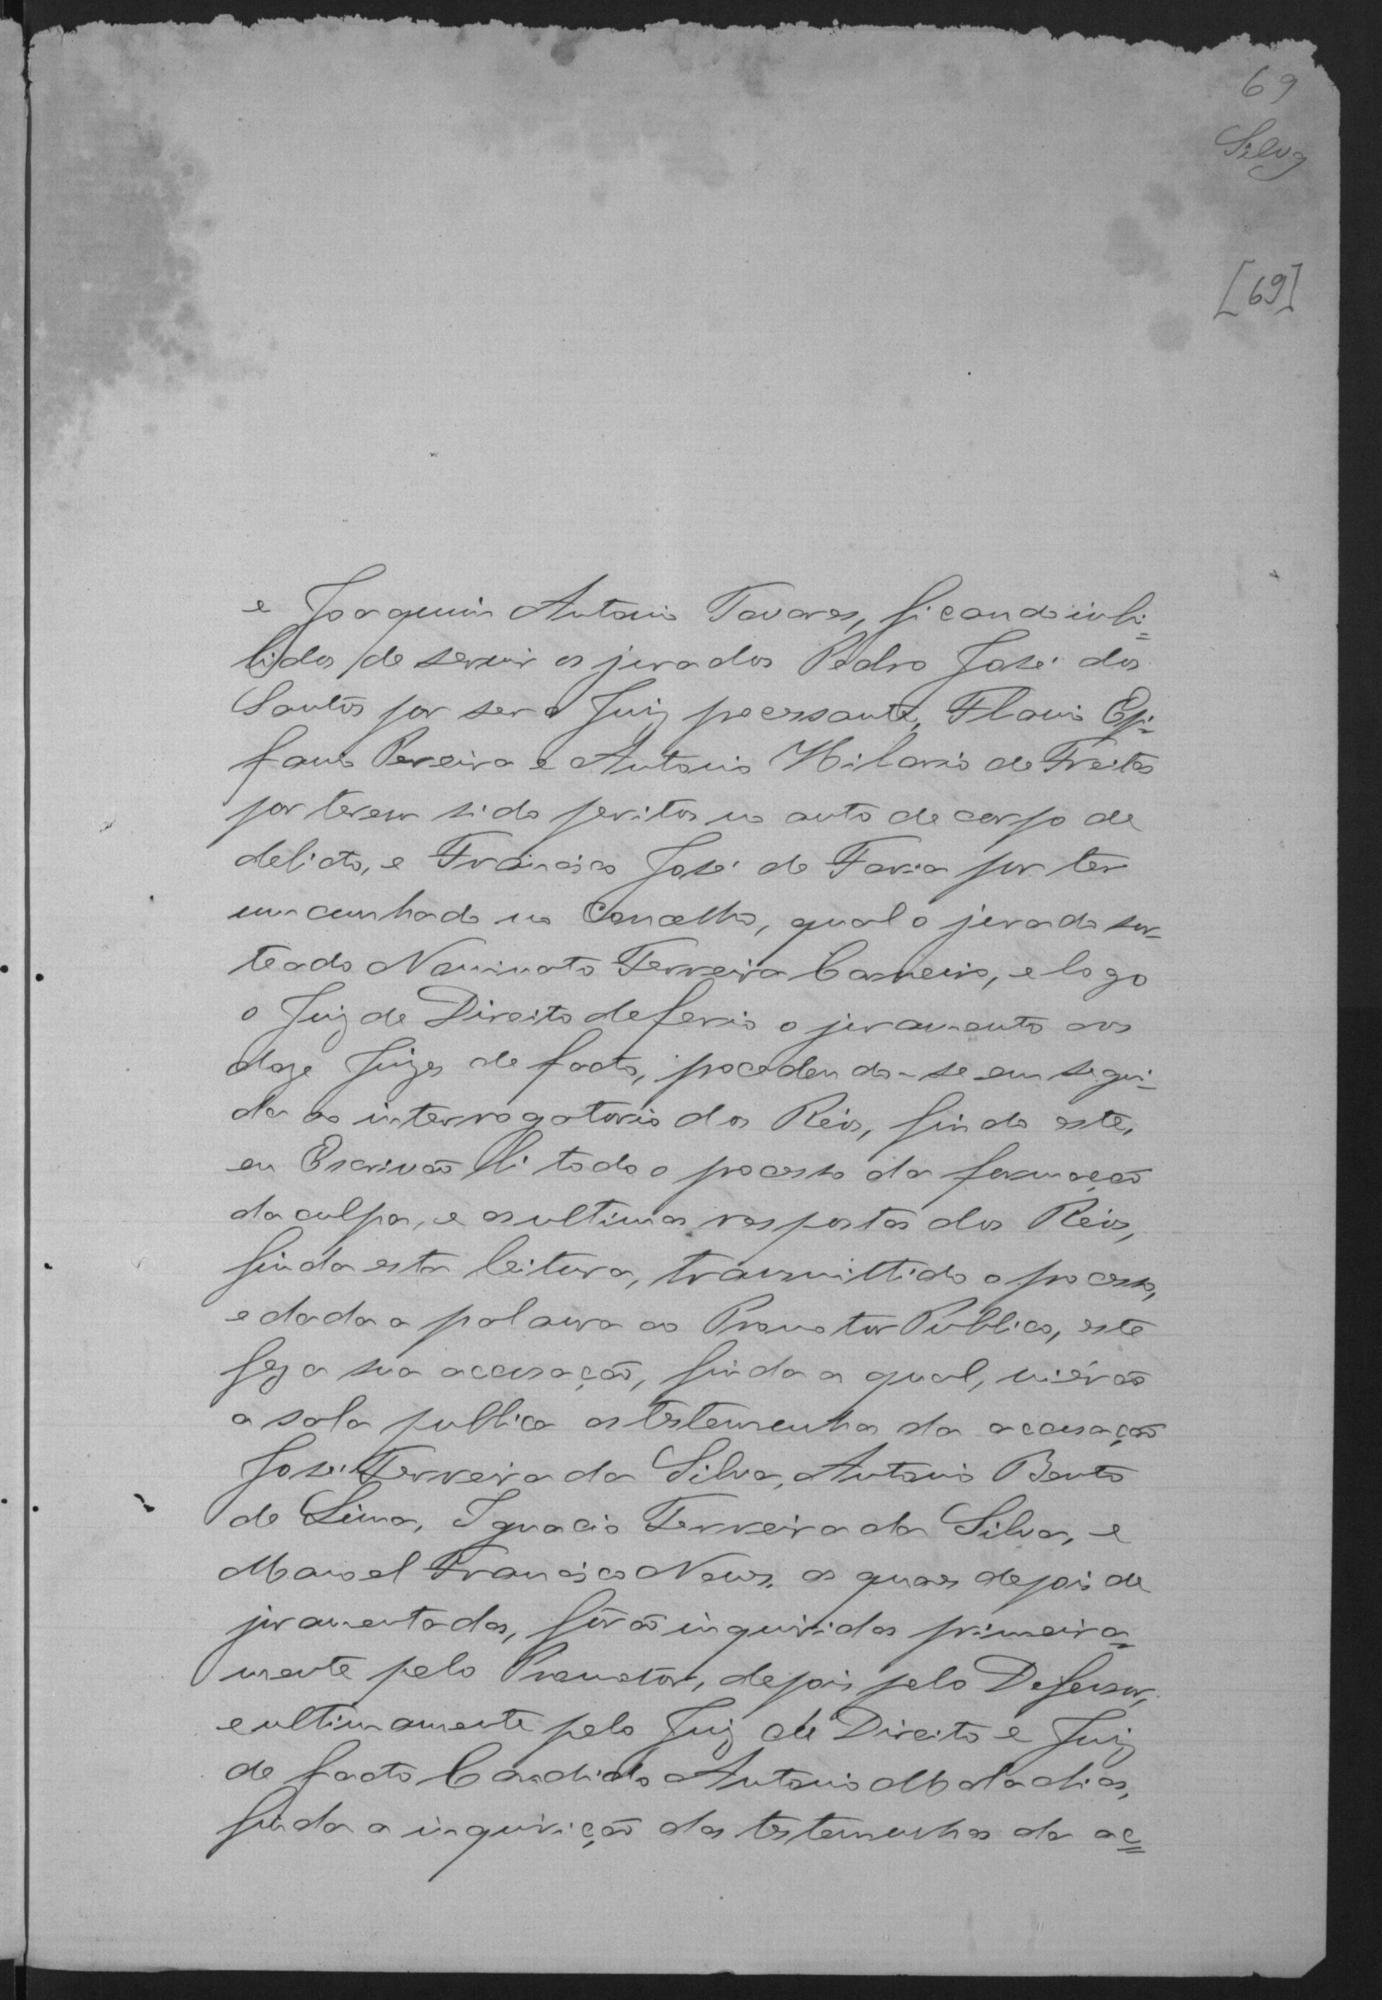 69
Silva
[69]
e Joaquim Antonio Tavares, ficando inhi=
bidos de servir os jurados Pedro José dos
Santos por ser o Juiz processante, Flavio Epi-
fanio Pereira e Antonio Hilario de Freitas
por terem sido peritos no auto de corpo de
delicto, e Francisco José de Faria por ter
um cunhado no Conselho, qual o jurado sor-
teado Noninato Ferreira Carneiro, e logo
o Juiz de Direito deferio o juramento aos
doze Juizes de facto, procedendo-se em segui-
da ao interrogatorio dos Réos, findo este,
eu Escrivão li todo o processo da formação
da culpa, e as ultimas respostas dos Réos,
finda esta leitura, transmittido o processo,
e dada a palavra ao Promotor Publico, este
fez a sua accusação, finda a qual, vierão
a sala publica as testemunhas da accusação
José Ferreira da Silva, Antonio Bento
de Lima, Ignacio Ferreira da Silva, e
Manoel Francisco Neves, as quaes depois de
juramentadas, forão inquiridas primeira-
mente pelo Promotor, depois pelo Defensor,
e ultimamente pelo Juiz de Direito e Juiz
de facto Candido Antonio Maladias,
finda a inquirição das testemunhas da ac=